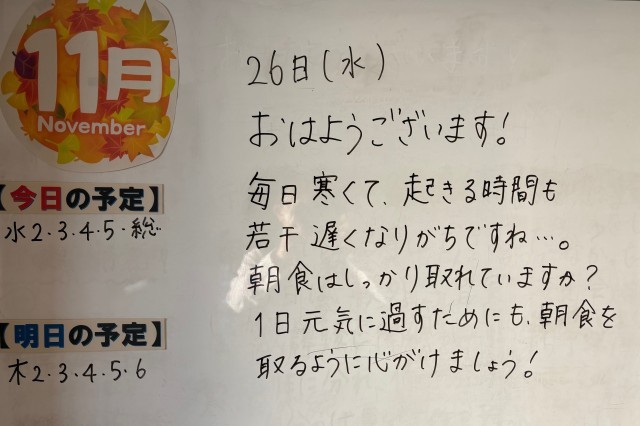 11月
November
【今日の予定】
水2・3・4・5・総
【明日の予定】
木2・3・4・5・6
26日(水)
おはようございます!
毎日寒くて、起きる時間も
若干遅くなりがちですね…。
朝食はしっかり取れていますか?
1日元気に過すためにも、朝食を
取るように心がけましょう!